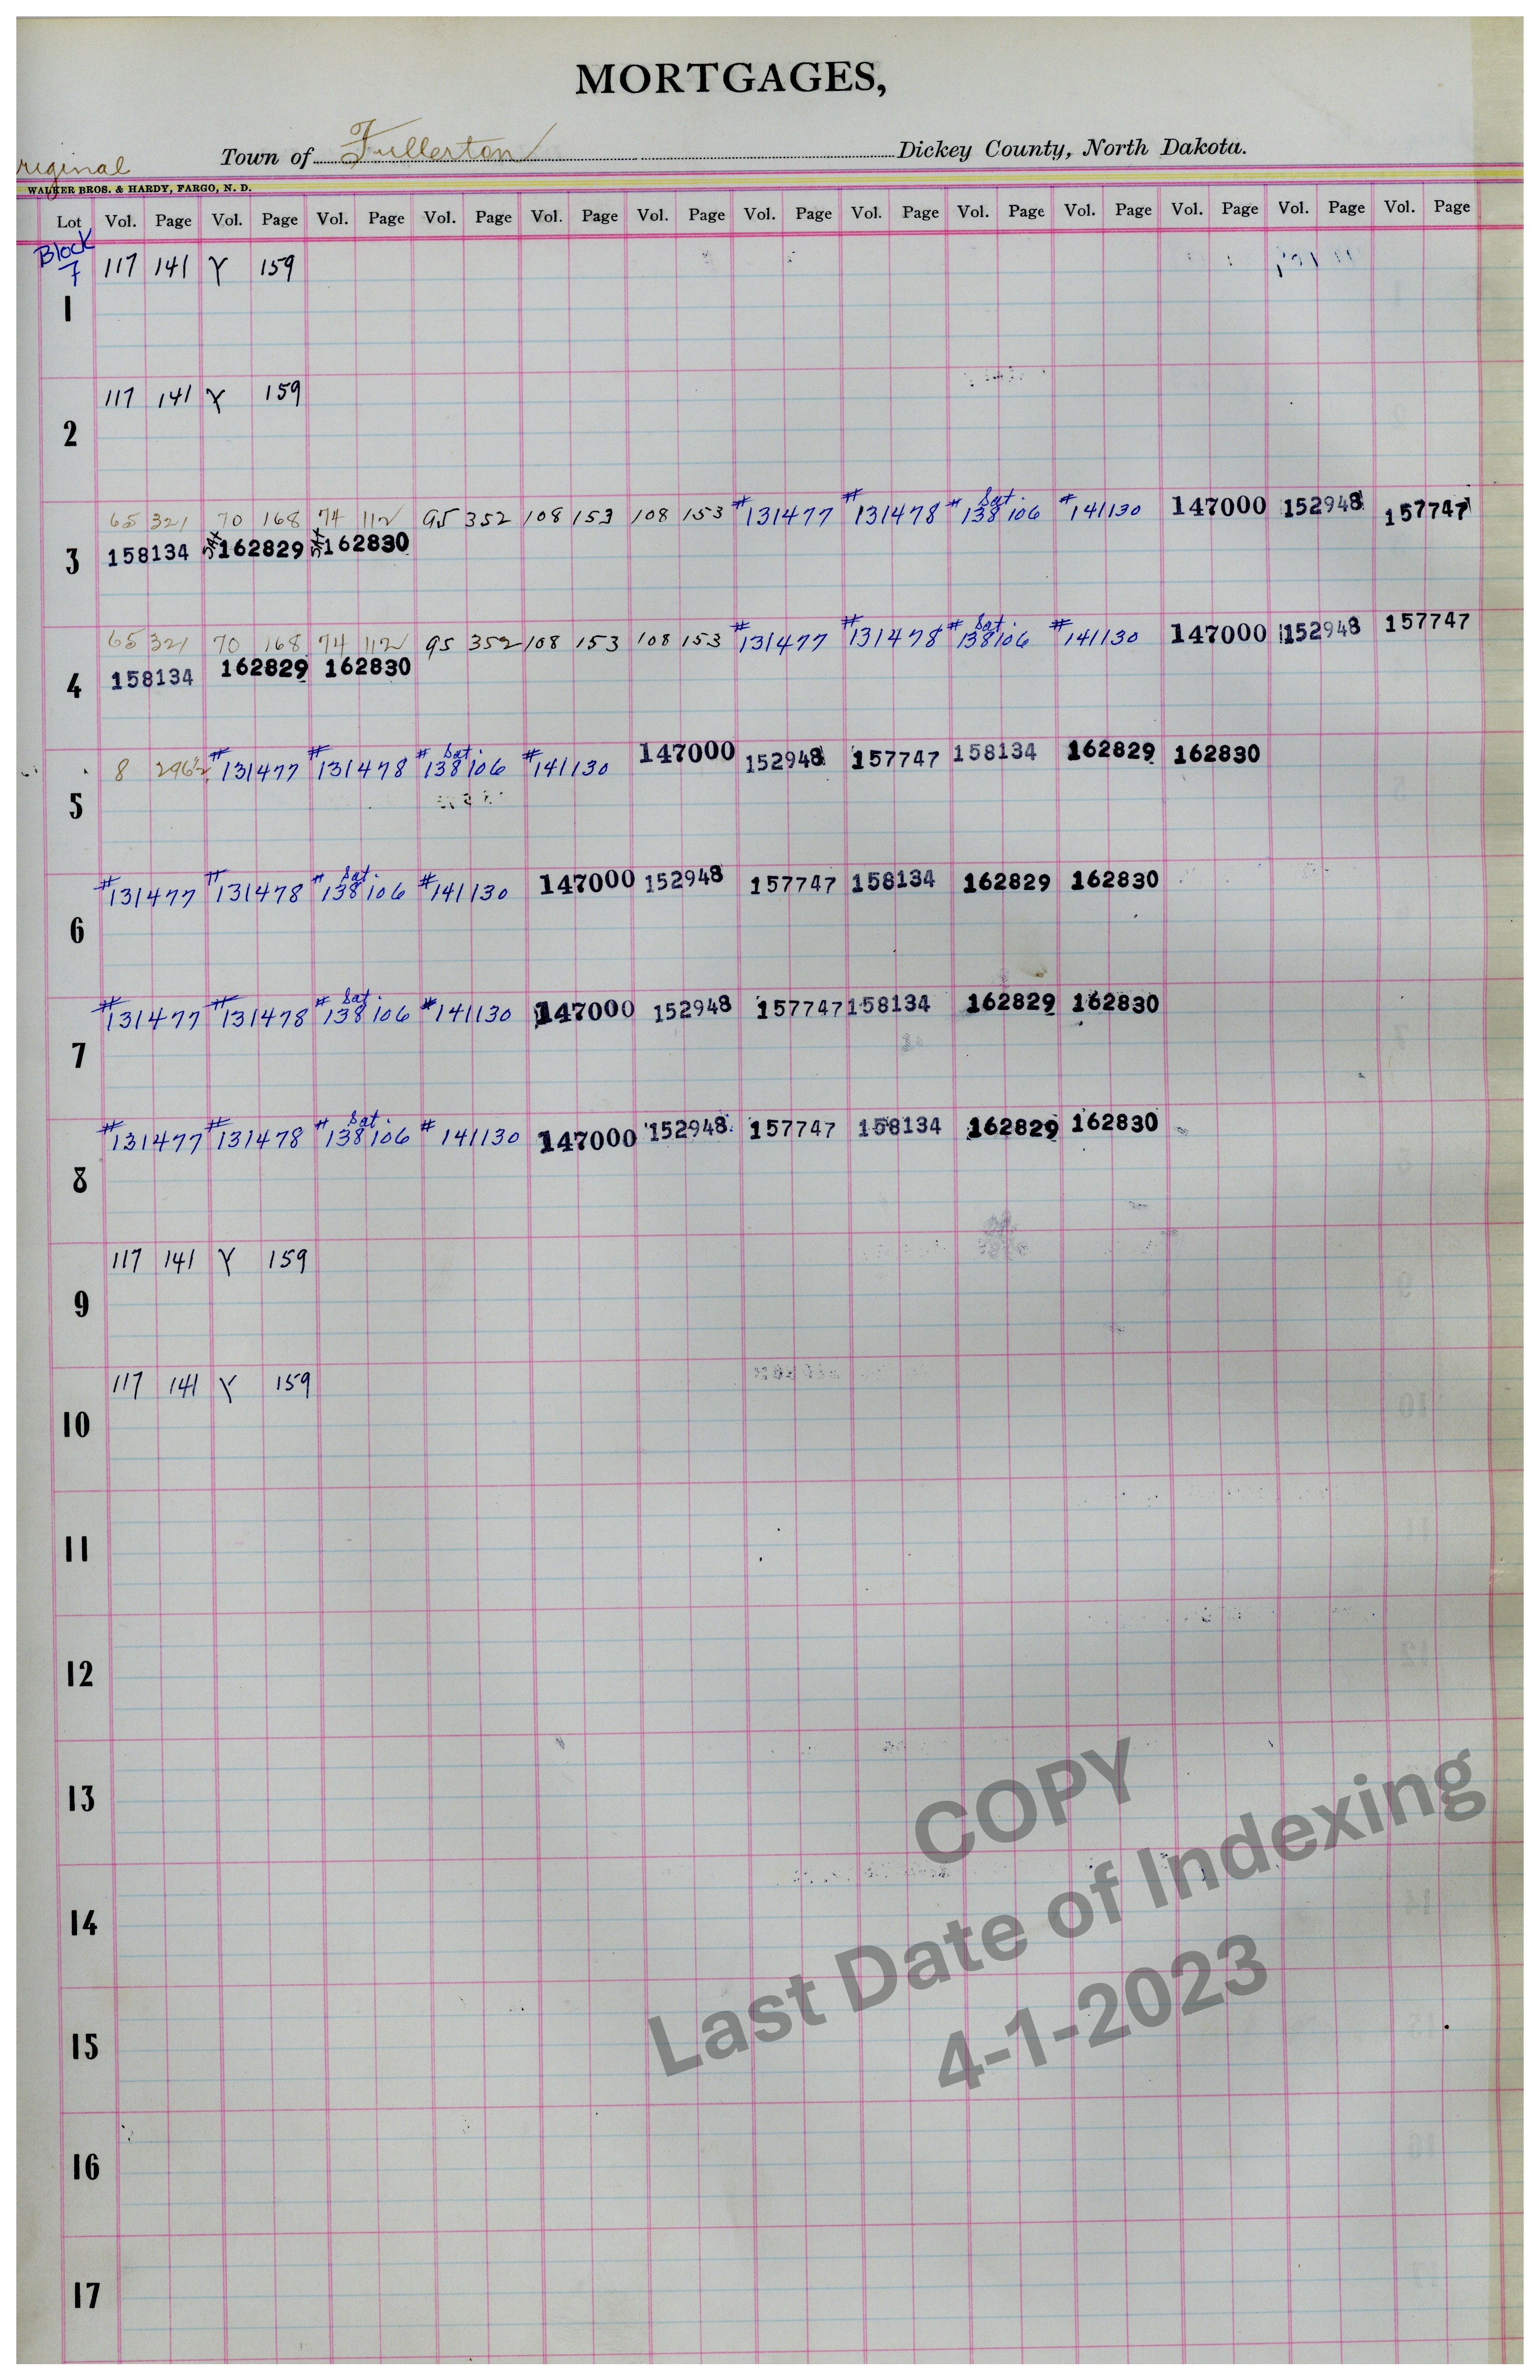 MORTGAGES,
Town of Fullerton Dickey County, North Dakota.
riginal
WALKER BROS. & HARDY, FARGO, N. D.
Lot Vol. Page Vol. Page Vol. Page Vol. Page Vol. Page Vol. Page Vol. Page Vol. Page Vol. Page Vol. Page Vol. Page Vol. Page Vol. Page
Block
7 117 141 Y 159
1
117 141 Y 159
2
65 321 70 168 74 112 95 352 108 153 108 153 #131477 #131478 # Sat. 138106 #141130 147000 152948 157747
3 158134 162829 162830
65 321 70 168 74 112 95 352 108 153 108 153 #131477 #131478 # Sat. 138106 #141130 147000 152948 157747
4 158134 162829 162830
8 #131477 #131478 # Sat. 138106 #141130 147000 152948 157747 158134 162829 162830
5
#131477 #131478 # Sat. 138106 #141130 147000 152948 157747 158134 162829 162830
6
#131477 #131478 # Sat. 138106 #141130 147000 152948 157747 158134 162829 162830
7
#131477 #131478 # Sat. 138106 # 141130 147000 152948 157747 158134 162829 162830
8
117 141 Y 159
9
117 141 Y 159
10
11
12
13
14
15
16
17
COPY
Last Date of Indexing
4-1-2023